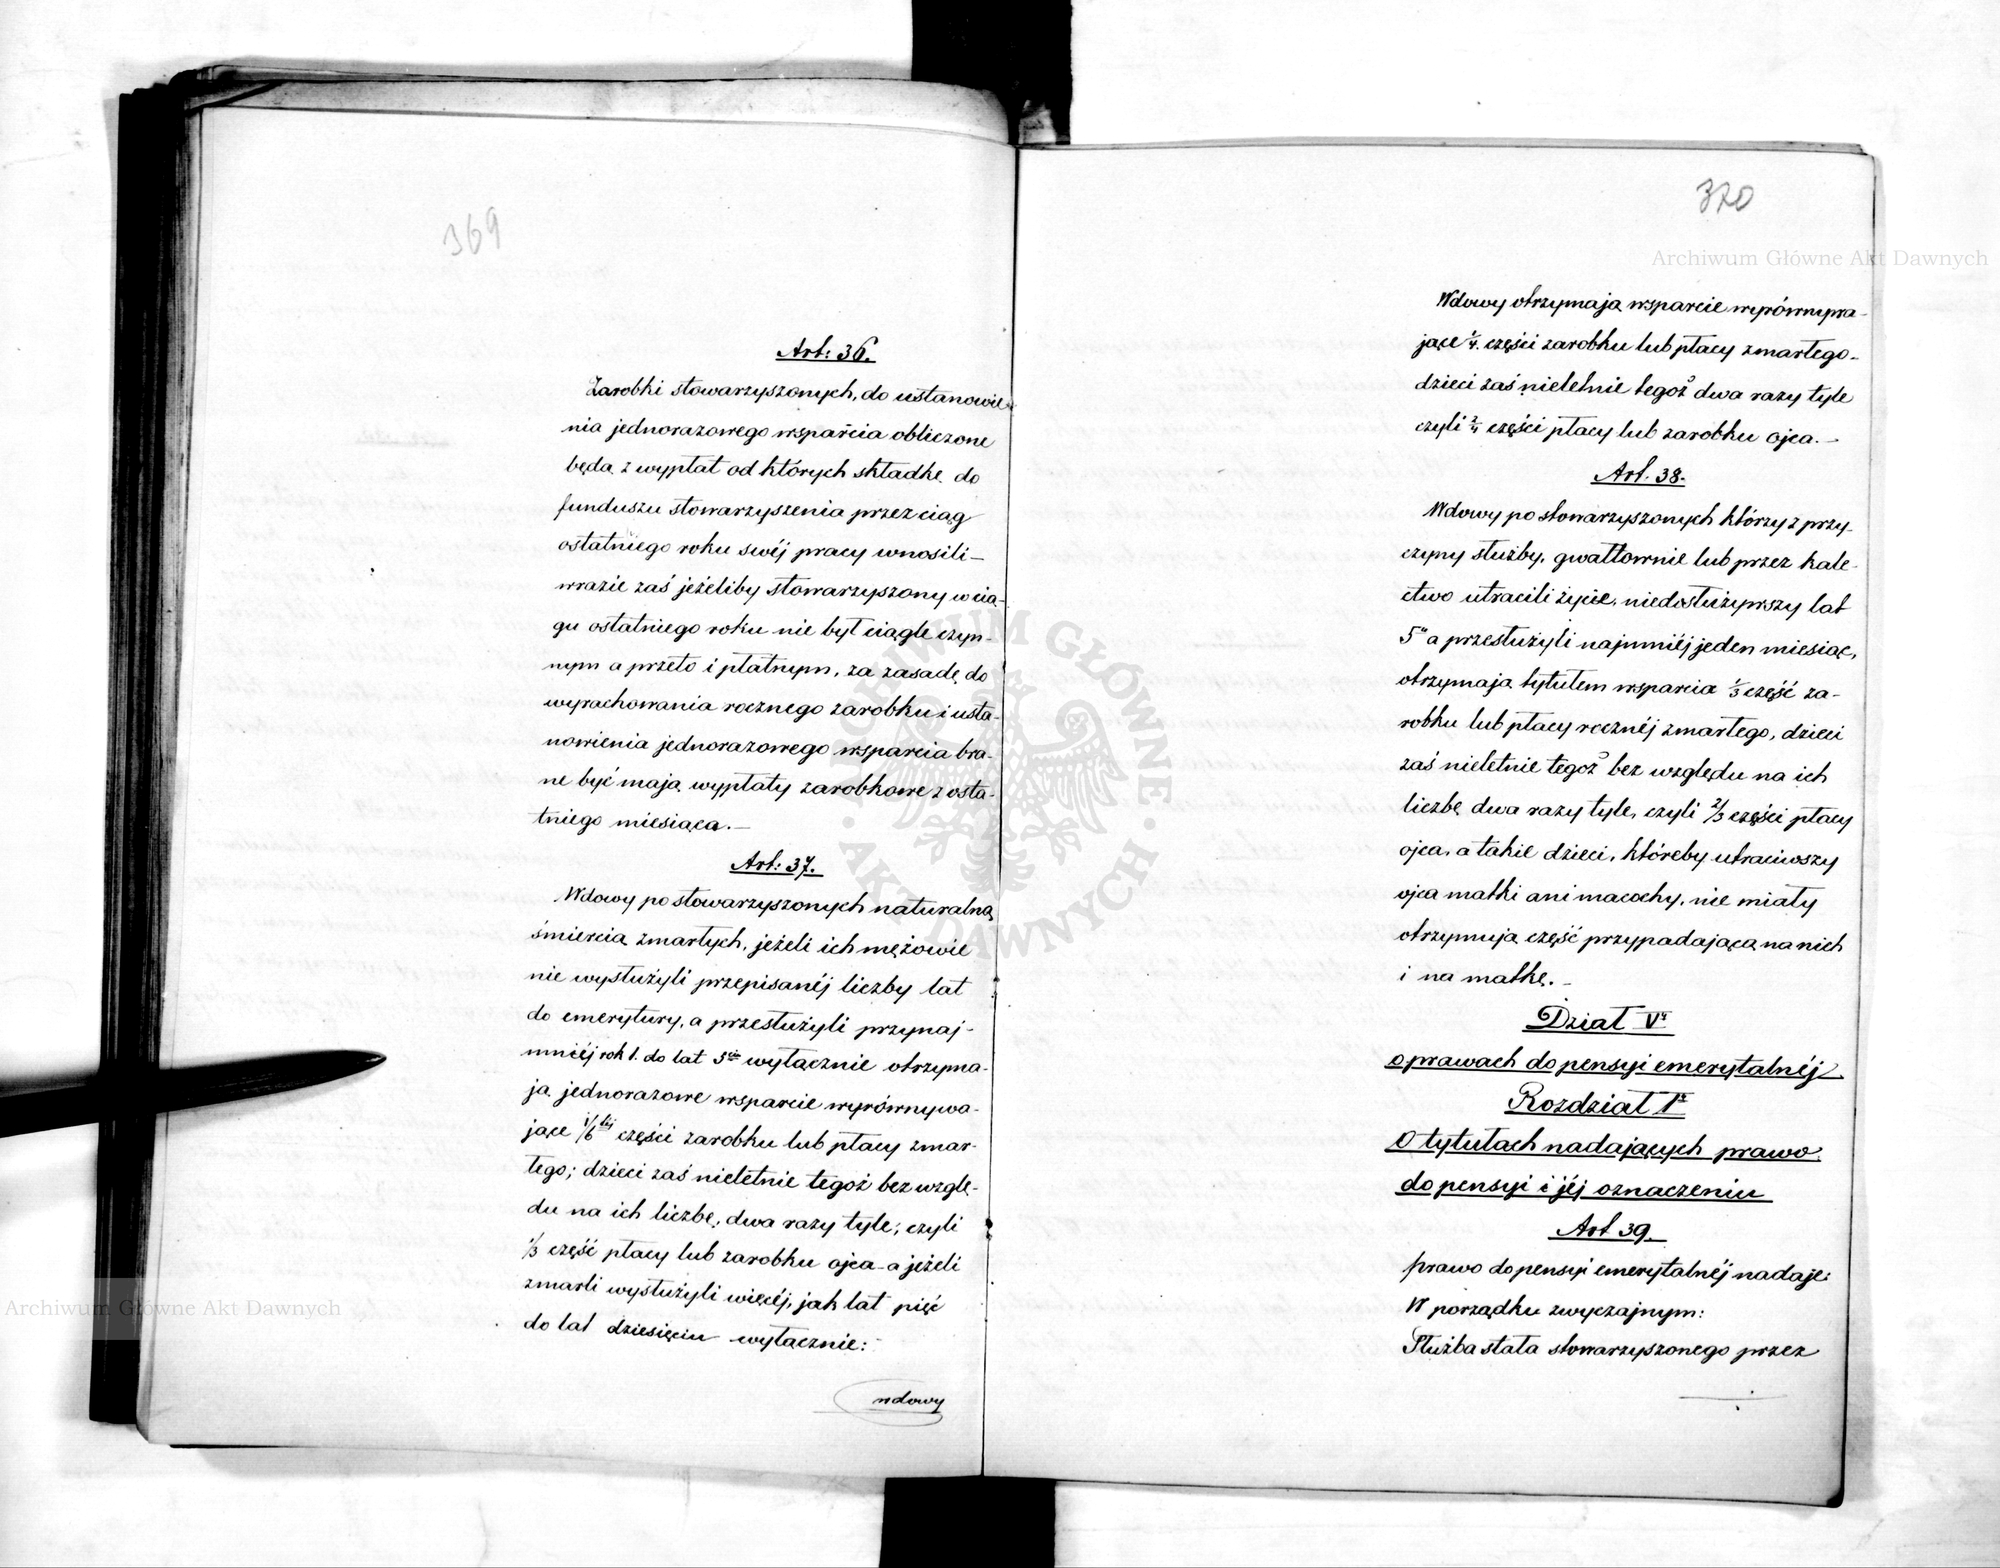 369
Art: 36.
Zarobki stowarzyszonych, do ustanowie-
nia jednorazowego wsparcia obliczone
będą z wypłat od których składkę do
funduszu stowarzyszenia przez ciąg
ostatniego roku swéj pracy wnosili –
wrazie zaś jeżeliby stowarzyszony w cią-
gu ostatniego roku nie był ciągle czyn-
nym a przeto i płatnym, za zasadę do
wyrachowania rocznego zarobku i usta-
nowienia jednorazowego wsparcia bra-
ne być mają wypłaty zarobkowe z osta-
tniego miesiąca. –
Art: 37.
Wdowy po stowarzyszonych naturalną
śmiercią zmarłych, jeżeli ich mężowie
nie wysłużyli przepisanéj liczby lat
do emerytury, a przesłużyli przynaj-
mniéj rok 1. do lat 5ciu wyłącznie otrzyma-
ją jednorazowe wsparcie wyrównywa-
jące 1/6téj części zarobku lub płacy zmar-
łego; dzieci zaś nieletnie tegoż bez wzglę-
du na ich liczbę, dwa razy tyle; czyli
1/3 część płacy lub zarobku ojca – a jeżeli
zmarli wysłużyli więcéj, jak lat pięć
do lat dziesięciu wyłącznie: –
wdowy
370
Wdowy otrzymają wsparcie wyrównywa-
jące 1/4. części zarobku lub płacy zmarłego –
dzieci zaś nieletnie tegoż dwa razy tyle
czyli 2/4 części płacy lub zarobku ojca. –
Art. 38.
Wdowy po stowarzyszonych którzy z przy-
czyny służby, gwałtownie lub przez kale-
ctwo utracili życie, niedosłużywszy lat
5" a przesłużyli najmniéj jeden miesiąc,
otrzymają tytułem wsparcia 1/3 część za-
robku lub płacy rocznéj zmarłego, dzieci
zaś nieletnie tegoż bez względu na ich
liczbę dwa razy tyle, czyli 2/3 części płacy
ojca, a takie dzieci, któreby utraciwszy
ojca matki ani macochy, nie miały
otrzymują część przypadającą na nich
i na matkę. –
Dział V.
o prawach do pensyi emerytalnéj
Rozdział 1.
O tytułach nadających prawo
do pensyi i jéj oznaczeniu
Art 39.
prawo do pensyi emerytalnéj nadaje:
W porządku zwyczajnym:
Służba stała stowarzyszonego przez
Archiwum Główne Akt Dawnych
Archiwum Główne Akt Dawnych
ARCHIWUM GŁÓWNE · AKT DAWNYCH ·